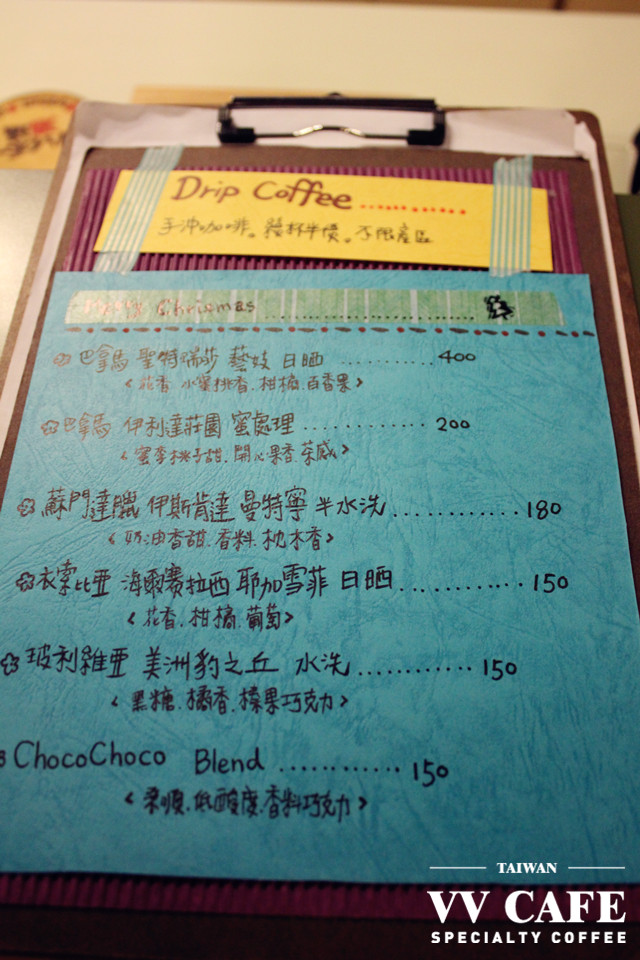 Drip Coffee..............
手沖咖啡。續杯半價。不限產區
Christmas
巴拿馬 聖特瑞莎 藝妓 日晒 ............400
<花香.水蜜桃香.柑橘.百香果>
巴拿馬 伊利達莊園 蜜處理 ............200
<蜜李桃子甜.開心果香.茶感>
蘇門達臘 伊斯肯達 曼特寧 半水洗............180
<奶油香甜.香料.枕木香>
衣索比亞 海爾賽拉西 耶加雪菲 日晒............150
<花香.柑橘.葡萄>
玻利維亞 美洲豹之丘 水洗............150
<黑糖.橘香.榛果巧克力>
ChocoChoco Blend ............150
<柔順.低酸度.香料巧克力>
TAIWAN
VV CAFE
SPECIALTY COFFEE